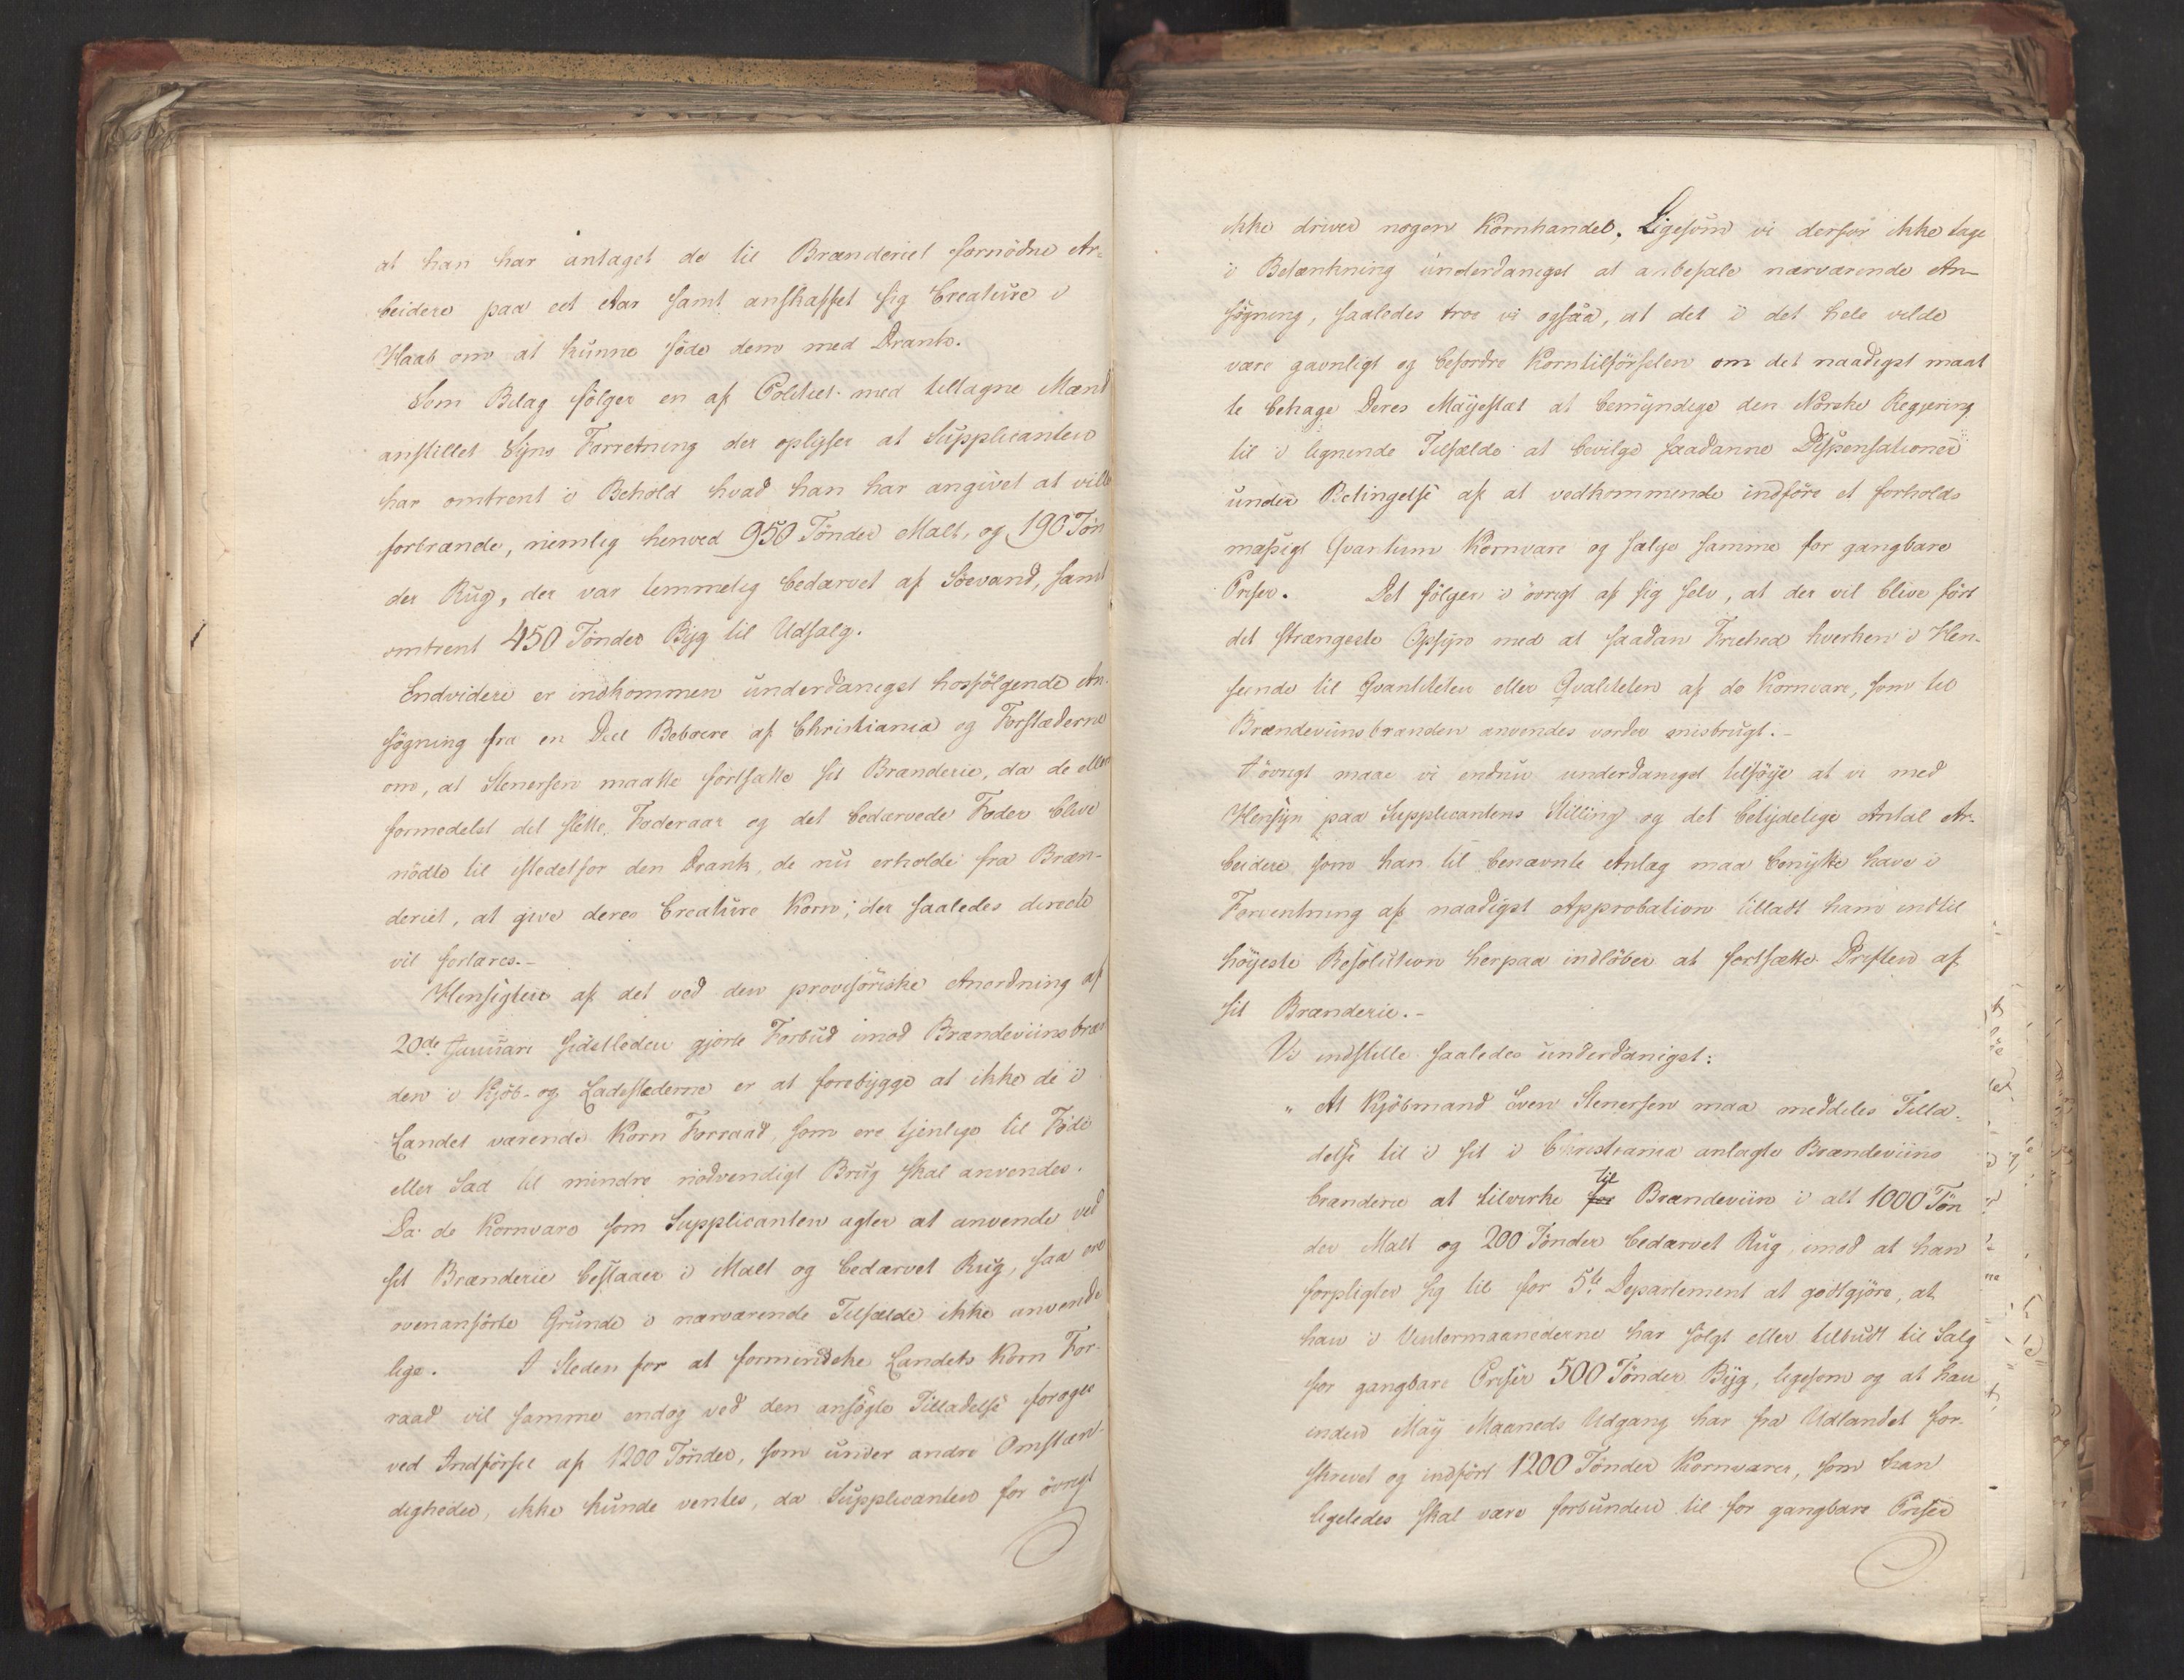 at han har antaget de til Brænderiet fornödne Ar-
beidere paa eet Aar samt anskaffet sig Creature i
Haab om at kunne föde dem med Drank.
Som Bilag fölger en af Politiet med tiltagne Mænd
anstillet Syns Forretning der oplyser at Supplicanten
har omtrent i Behold hvad han har angivet at ville
forbrænde, nemlig henved 950 Tönder Malt, og 190 Tön
der Rug, der var temmelig bedærvet af Söevand, samt
omtrent 450 Tönder Byg til Udsalg.
Endvidere er indkommen underdanigst hosfölgende An-
sögning fra en Deel Beboere af Christiania og Forstæderne
om, at Stenersen maatte fortsætte sit Brænderie, da de ellers
formedelst det slette Foderaar og det bedærvede Foder blive
nödte til istedetfor den Drank, de nu erholde fra Bræn-
deriet, at give deres Creature Korn, der saaledes directe
vil fortæres.-
Hensigten af det ved den provisoriske Anordning af
20de Januari sidstleden gjorte Forbud imod Brændeviinsbræn
den i Kjöb- og Ladestæderne er at forebygge at ikke de i
Landet værende Korn Forraad, som ere tjenlige til Föde
eller Sæd til mindre nödvendigt Brug skal anvendes.
Da de Kornvare som Supplicanten agter at anvende ved
sit Brænderie bestaaer i Malt og bedærvet Rug, saa ere
ovenanförte Grunde i nærværende Tilfælde ikke anvende
lige. I Steden for at formindske Landets Korn For-
raad vil samme endog ved den ansögte Tilladelse foröges
ved Indförsel af 1200 Tönder, som under andre Omstæn-
digheder, ikke kunde ventes, da Supplicanten for övrigt
ikke driver nogen Kornhandel. Ligesom vi derfor ikke tage
i Betænkning underdanigst at anbefale nærværende An-
sögning, saaledes troe vi ogsaa, at det i det hele vilde
være gavnligt og befordre Korntilförselen om det naadigst maat
te behage Deres Majestæt at bemyndige den Norske Regjering
til i lignende Tilfælde at bevilge saadanne Dispensationer
under Betingelse af at vedkommende indföre et forholds
mæsigt Qvantum Kornvare og sælge samme for gangbare
Priser. Det fölger i övrigt af sig selv, at der vil blive fört
det strængeste Opsyn med at saadan Friehed hverken i Hen-
seende til Qvantiteten eller Qvaliteten af de Kornvare, som til
Brændeviinsbrænden anvendes vorder misbrugt.-
I övrigt maae vi endnu underdanigst tilföye at vi med
Hensyn paa Supplicantens Stilling og det betydelige Antal Ar-
beidere, som han til benævnte Anlæg maa benytte have i
Forventning af naadigst Approbation tilladt ham indtil
höyeste Resolution herpaa indlöber at fortsætte Driften af
sit Brænderie.-
Vi indstille saaledes underdanigst:
" At Kjöbmand Sven Stenersen maa meddeles Tilla-
delse til i sit i Christiania anlagte Brændeviins
brænderie at tilvirke for til Brændeviin i alt 1000 Tön
der Malt og 200 Tönder bedærvet Rug, imod at han
forpligter sig til for 5te Departement at godtgjöre, at
han i Vintermaanederne har solgt eller tilbudt til Salg
for gangbare Priser 500 Tönder Byg, ligesom og at han
inden May Maaneds Udgang har fra Udlandet for-
skrevet og indfört 1200 Tönder Kornvarer, som han
ligeledes skal være forbunden til for gangbare Priser